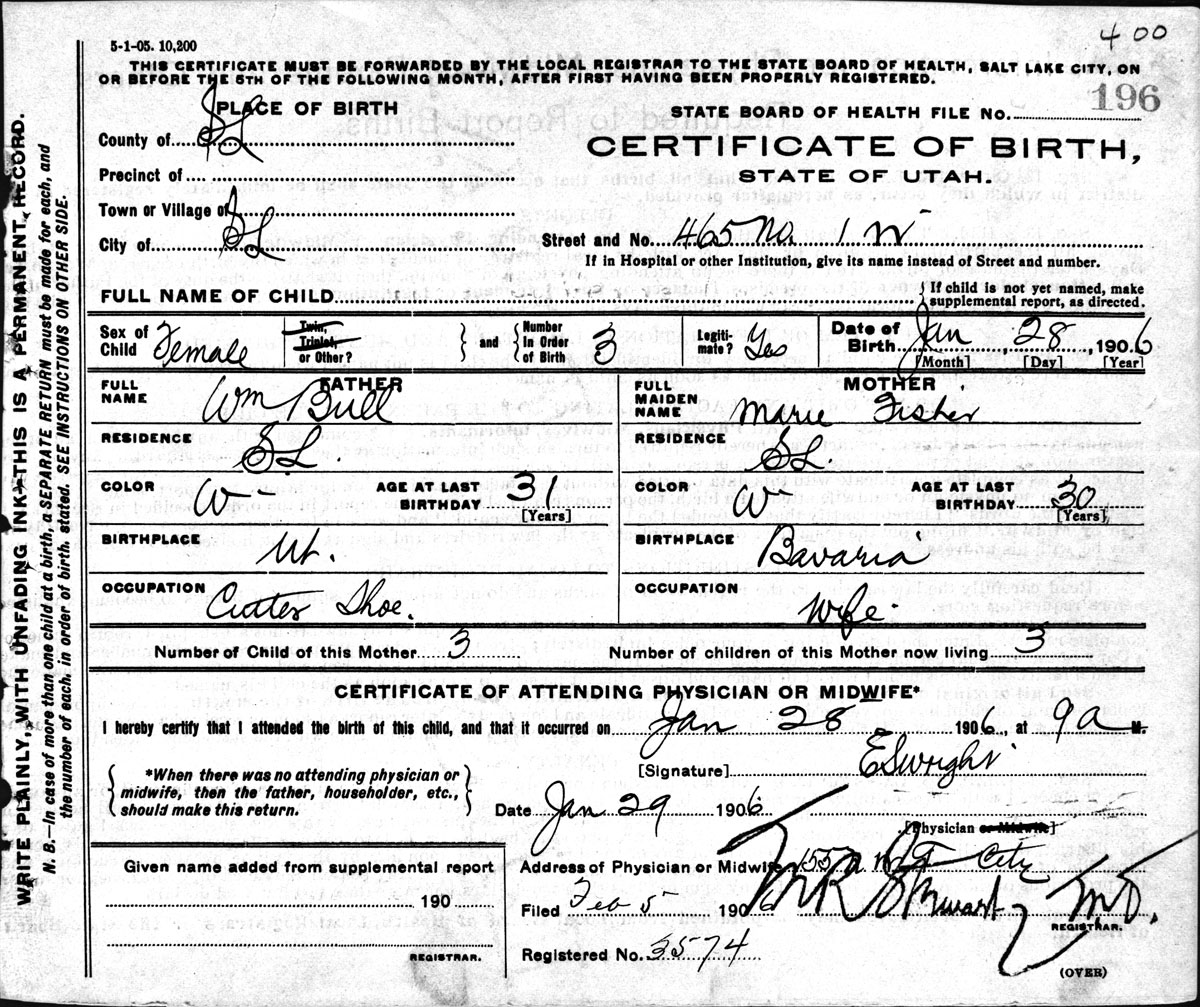 4 00
5-1-05. 10,200
THIS CERTIFICATE MUST BE FORWARDED BY THE LOCAL REGISTRAR TO THE STATE BOARD OF HEALTH, SALT LAKE CITY, ON
OR BEFORE THE 5TH OF THE FOLLOWING MONTH, AFTER FIRST HAVING BEEN PROPERLY REGISTERED.
196
PLACE OF BIRTH
STATE BOARD OF HEALTH FILE No.
County of SL
CERTIFICATE OF BIRTH,
STATE OF UTAH.
Precinct of
Town or Village of
City of SL
Street and No. 465 No. 1 W
If in Hospital or other Institution, give its name instead of Street and number.
FULL NAME OF CHILD
If child is not yet named, make
supplemental report, as directed.
Sex of Child Female
Twin, Triplet, or Other?
and
Number In Order of Birth 3
Legiti-mate? Yes
Date of Birth Jan 28 1906
[Month] [Day] [Year]
FATHER
FULL NAME Wm Bull
MOTHER
FULL MAIDEN NAME Marie Fisher
RESIDENCE SL.
RESIDENCE SL
COLOR W- AGE AT LAST BIRTHDAY 31 [Years]
COLOR W- AGE AT LAST BIRTHDAY 30 [Years]
BIRTHPLACE Ut.
BIRTHPLACE Bavaria
OCCUPATION Cutter Shoe.
OCCUPATION Wife.
Number of Child of this Mother 3
Number of children of this Mother now living 3
CERTIFICATE OF ATTENDING PHYSICIAN OR MIDWIFE*
I hereby certify that I attended the birth of this child, and that it occurred on Jan 28 1906, at 9a M.
*When there was no attending physician or
midwife, then the father, householder, etc.,
should make this return.
[Signature] ESWright
Date Jan 29 1906
[Physician or Midwife]
Given name added from supplemental report
190
REGISTRAR.
Address of Physician or Midwife City
Filed Feb 5 1906
Stewart M.D.
REGISTRAR.
Registered No. 3574
(OVER)
WRITE PLAINLY, WITH UNFADING INK—THIS IS A PERMANENT RECORD.
N. B.—In case of more than one child at a birth, a SEPARATE RETURN must be made for each, and
the number of each, in order of birth, stated. SEE INSTRUCTIONS ON OTHER SIDE.